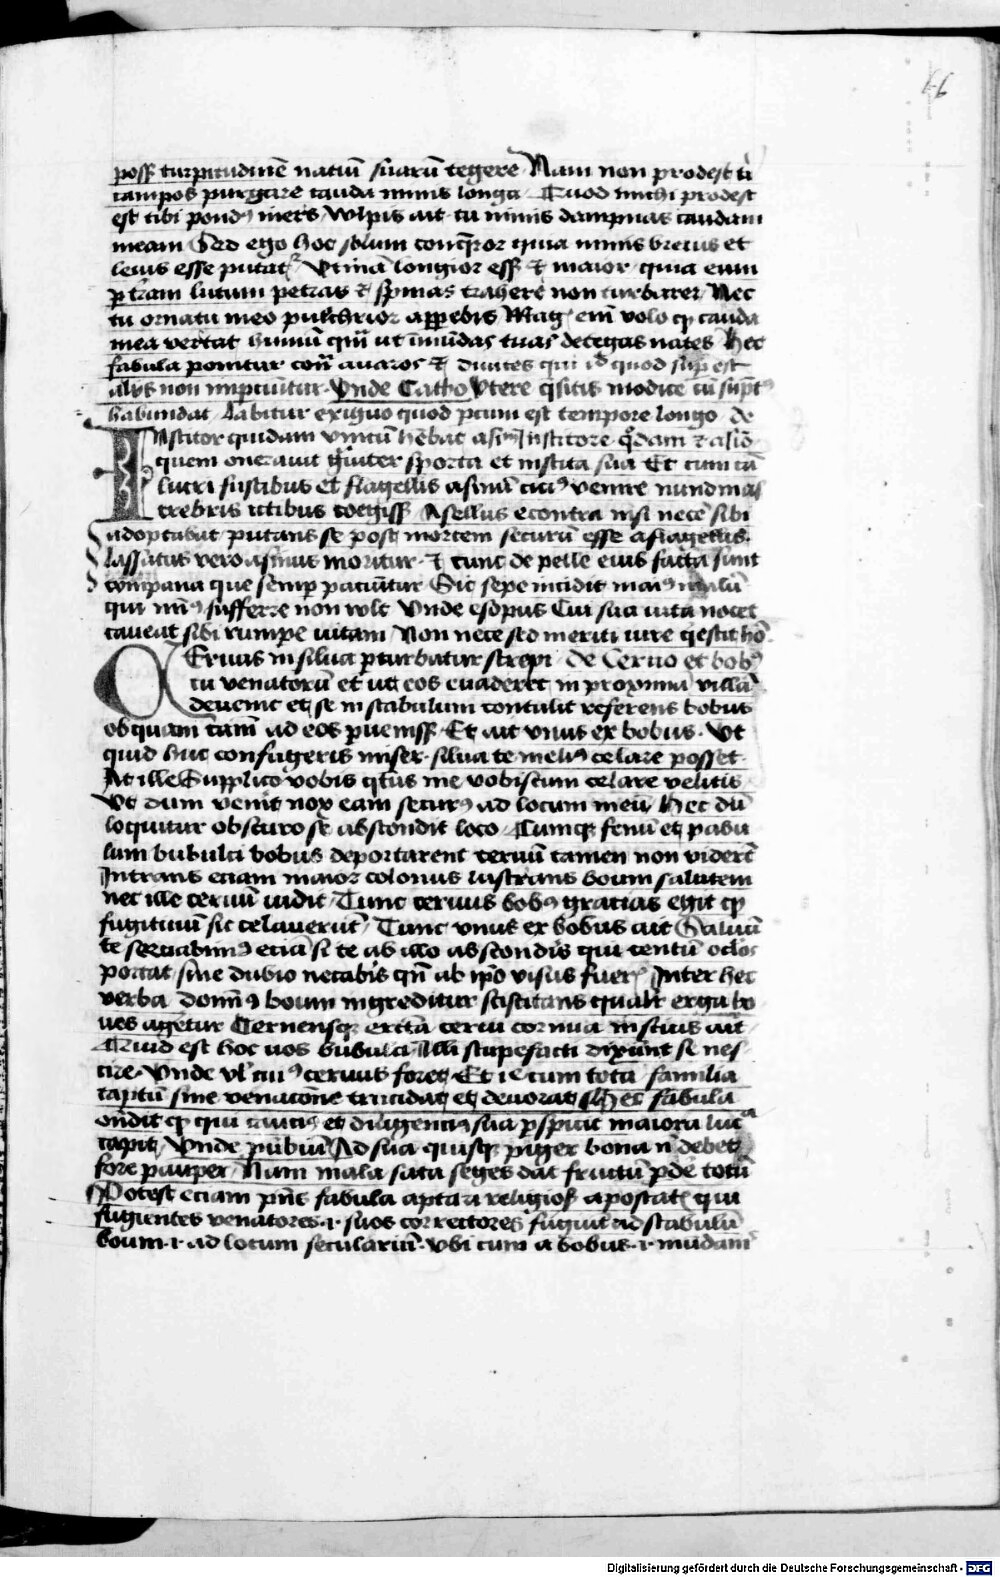 66
poss turpitudinē natiū suarū tegere Nam non prodest ti
campos purgare cauda nimis longa Quod michi prodest
est tibi pondus iners vulpis ait tu nimis dampnas caudam
meam Sed ego hoc solum conqueror quia nimis breuis et
leuis esse putatur Vtinā longior ess et maior quia eum
per terram lutum petras et spinas trahere non turbarer Nec
tu ornatu meo pulchrior apparebis Magis enim volo quod cauda
mea vertat humū quam ut īmūdas tuas detegas nates Hec
fabula ponitur contra auaros et diuites qui id quod super est
aliis non impciūtur Vnde Catho Vtere quesitis modice cū supt
habundat Labitur exiguo quod ptum est tempore longo de
Institor quidam vnicū hebat asinū Institore quodam et asino
quem onerauit grauiter sporta et instita sua Et cum cā
lucri fustibus et flagellis asinū cicius venire nundinas
crebris ictibus coegiss Asellus econtra nisi necē sibi
adoptabat putans se post mortem securū esse a flagellis
Lassatus vero asinus moritur et tunc de pelle eius facta sunt
timpana que semper patiūtur Sic sepe incidit maius malū
qui minus sufferre non vult Vnde esopus Cui sua vita nocet
caueat sibi rumpe vitam Non nece sed meriti iure quiescit ho
CEruus in silua perturbatur strepi de Ceruo et bobus
tu venatorū et ut eos euaderet in proximā villā
deuenit et se in stabulum contulit referens bobus
ob quam cam ad eos peruenisse Et ait vnus ex bobus Vt
quid huc confugeris miser silua te melius celare posset
At ille Supplico vobis quatenus me vobiscum celare velitis
Vt dum venit nox eam securus ad locum meū Hec dū
loquitur obscuro se abscondit loco Cumque fenū et pabu
lum bubulci bobus deportarent ceruū tamen non viderēt
Intrans eciam maior colonus lustrans boum salutem
nec ille ceruū vidit Tunc ceruus bobus gracias egit quod
fugitiuū sic celauerūt Tunc vnus ex bobus ait Saluū
te seruabimus eciā si te ab illo abscondis qui centū oclos
portat sine dubio necabis quoniam ab ipso visus fueris Inter hec
verba dominus boum ingreditur sciscitans qualiter erga bo
ues agetur Cernensque erectā cerui cornua inscius ait
Quid est hoc uos bubulci Illi stupefacti dixūnt se nes
cire Vnde vel cuius ceruus foret Et ie cum tota familia
captū sine venacōne trucidat et deuorat Hec fabula
ondit quod qui caucius et diligencius sua perspicit maiora luc
capit Vnde Ad sua quisque piger bona non debet
fore pauper Nam mala sata seges dat fructū perde totū
Potest eciam pns fabula aptari religiosis apostatis qui
fugientes venatores .i. suos correctores fugiūt ad stabulū
boum .i. ad locum seculariū vbi cum a bobus .i. mūdanis
Digitalisierung gefördert durch die Deutsche Forschungsgemeinschaft - DFG